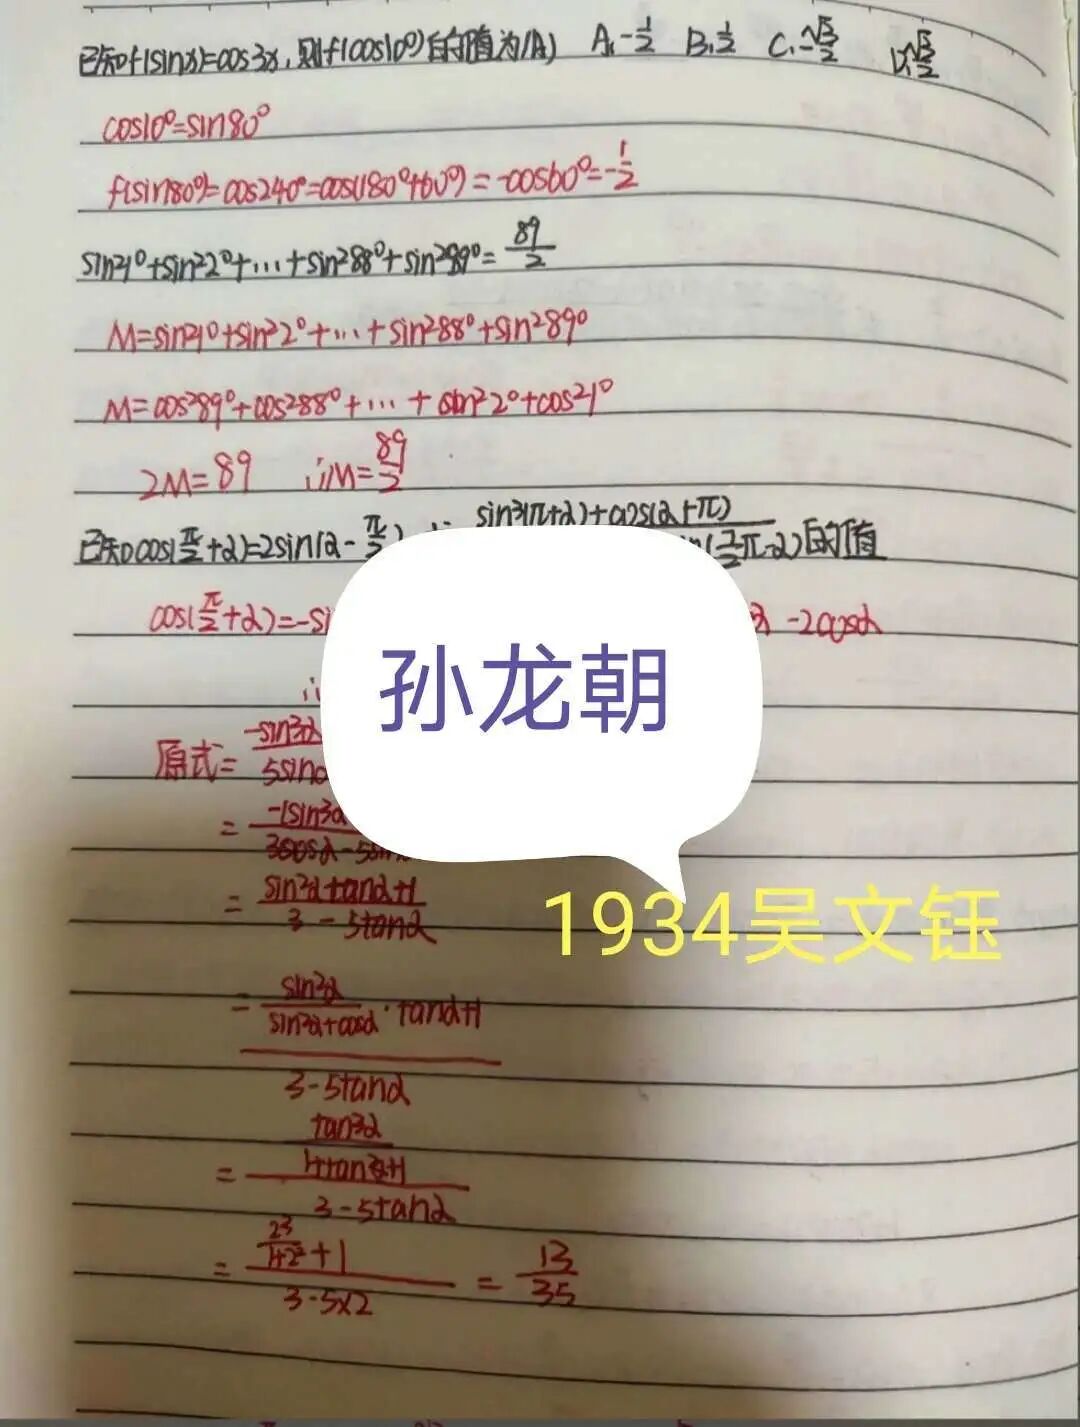 已知f(sinx)=cos3x,则f(cos10°)的值为(A) A.-1/2 B.1/2 C.-√3/2 D.√3/2
cos10°=sin80°
f(sin80°)=cos240°=cos(180°+60°)=-cos60°=-1/2
sin²1°+sin²2°+…+sin²88°+sin²89°=89/2
M=sin²1°+sin²2°+…+sin²88°+sin²89°
M=cos²89°+cos²88°+…+cos²2°+cos²1°
2M=89 ∴M=89/2
已知cos(π/2+α)=2sin(α-π/2) sin³(π+α)+cos(α+π) (7/2π-α)的值
cos(π/2+α)=-si -2cosα
∴
孙龙朝
原式= -sin³α 5sinα
= -(sin³α 3cosα-5sin
= (sin²α·tanα+1)/(3-5tanα)
1934吴文钰
= (sin²α/(sin²α+cos²α)·tanα+1)/(3-5tanα)
= (tan³α/(1+tan²α)+1)/(3-5tanα)
= (2³/(1+2²)+1)/(3-5×2) = 13/35